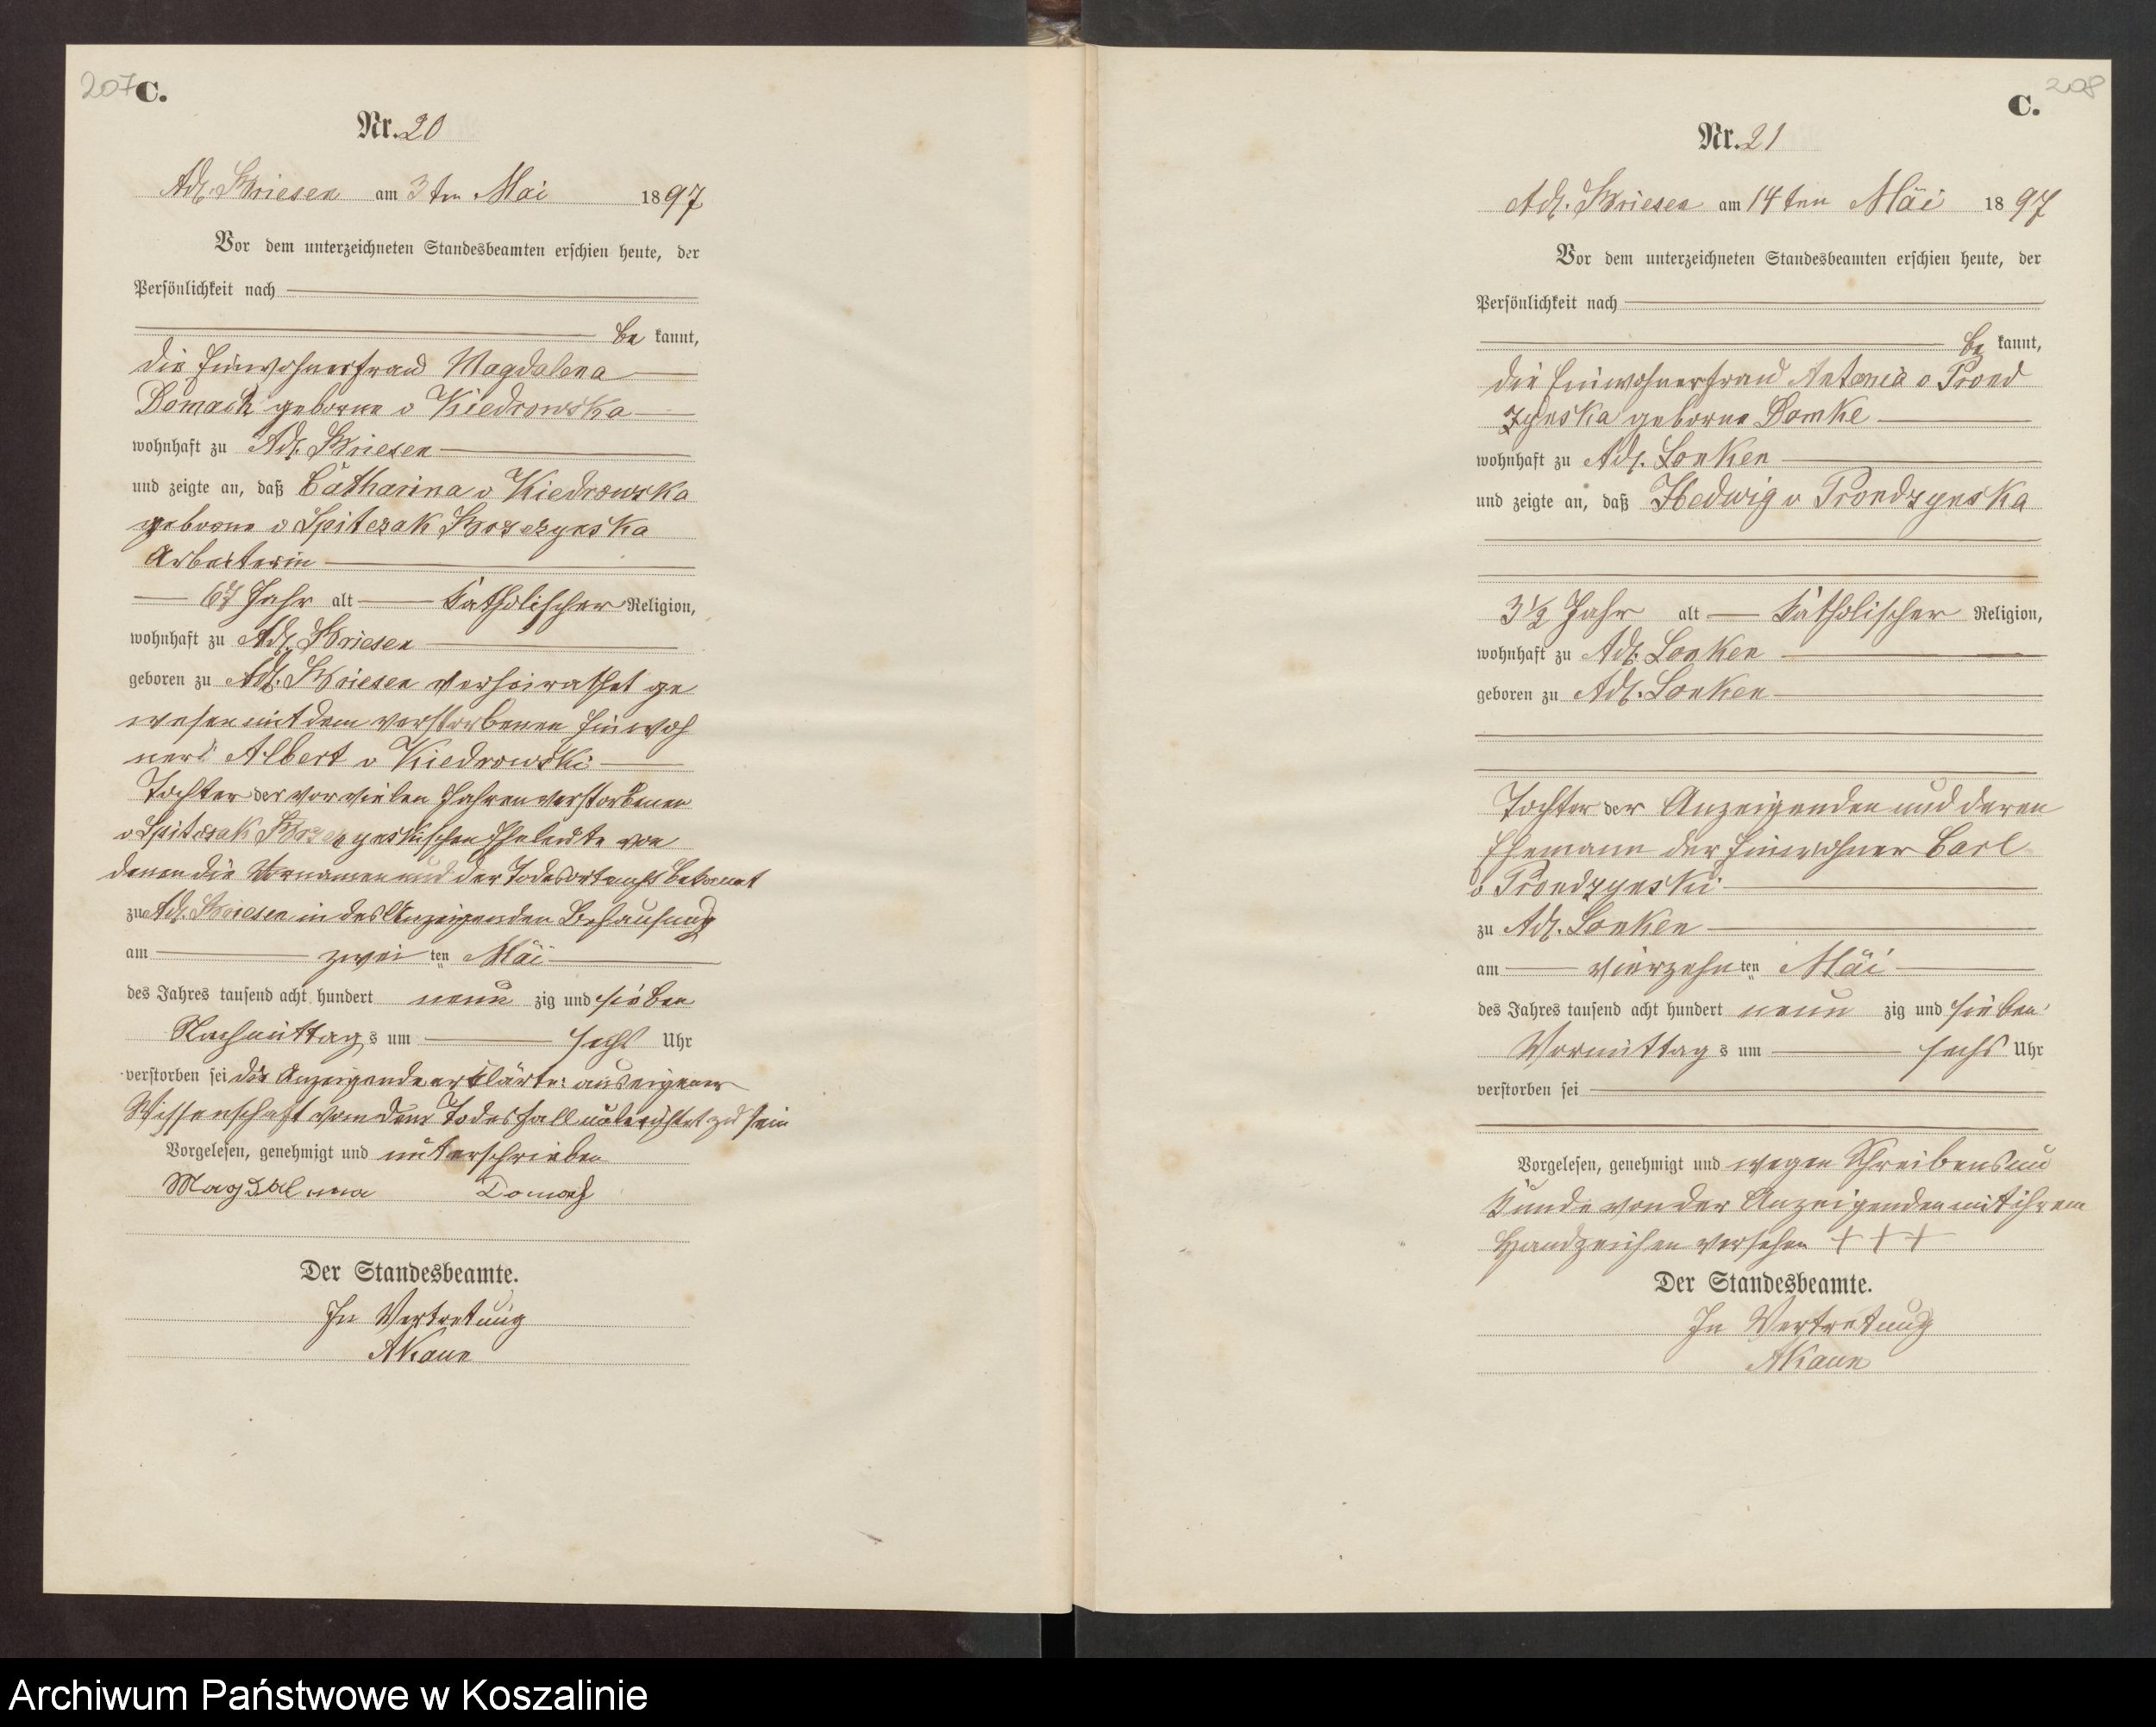 207 C.
Nr. 20
Adl. Briesen am 3ten Mai 1897
Vor dem unterzeichneten Standesbeamten erschien heute, der
Persönlichkeit nach
be kannt,
die Einwohnerfrau Magdalena
Domach geborne v Kiedrowska
wohnhaft zu Adl. Briesen
und zeigte an, daß Catharina v Kiedrowska
geborne v Spiczak Brzezynska
Arbeiterin
67 Jahr alt katholischer Religion,
wohnhaft zu Adl. Briesen
geboren zu Adl. Briesen verheirathet ge
wesen mit dem verstorbenen Einwoh
ners Albert v Kiedrowski
Tochter der vor vielen Jahren verstorbenen
v Spiczak Eheleute von
denen die Vornamen und der Todesort nicht bekannt
zu Adl. Briesen in des Anzeigenden Behausung
am zwei ten Mai
des Jahres tausend acht hundert neun zig und sieben
Nachmittag s um sechs Uhr
verstorben sei die Anzeigende erklärte: aus eigener
Wissenschaft von dem Todesfall unterrichtet zu sein
Vorgelesen, genehmigt und unterschrieben
Magdalena Domach
Der Standesbeamte.
In Vertretung
AKaun
208
C.
Nr. 21
Adl. Briesen am 14ten Mai 1897
Vor dem unterzeichneten Standesbeamten erschien heute, der
Persönlichkeit nach
be kannt,
die Einwohnerfrau Antonia v Prond
zynska geborne Domke
wohnhaft zu Adl. Lonken
und zeigte an, daß Hedwig v Prondzynska
3½ Jahr alt katholischer Religion,
wohnhaft zu Adl. Lonken
geboren zu Adl. Lonken
Tochter der Anzeigenden und deren
Ehemann der Einwohner Carl
v Prondzynski
zu Adl. Lonken
am vierzehn ten Mai
des Jahres tausend acht hundert neun zig und sieben
Vormittag s um sechs Uhr
verstorben sei
Vorgelesen, genehmigt und wegen Schreibensun
kunde von der Anzeigenden mit ihrem
Handzeichen versehen + + +
Der Standesbeamte.
In Vertretung
AKaun
Archiwum Państwowe w Koszalinie